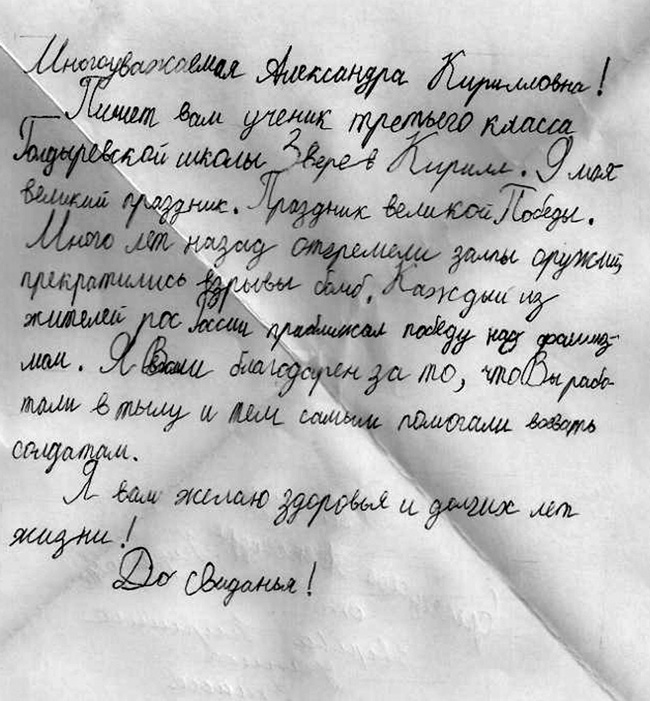 Многоуважаемая Александра Кирилловна!
Пишет вам ученик третьего класса
Голдыревской школы Зверев Кирилл. 9 мая
великий праздник. Праздник великой Победы.
Много лет назад отгремели залпы оружий,
прекратились взрывы бомб. Каждый из
жителей рос России приближал победу над фашиз-
мом. Я Вам благодарен за то, что Вы рабо-
тали в тылу и тем самым помогали воевать
солдатам.
Я вам желаю здоровья и долгих лет
жизни!
До свиданья!